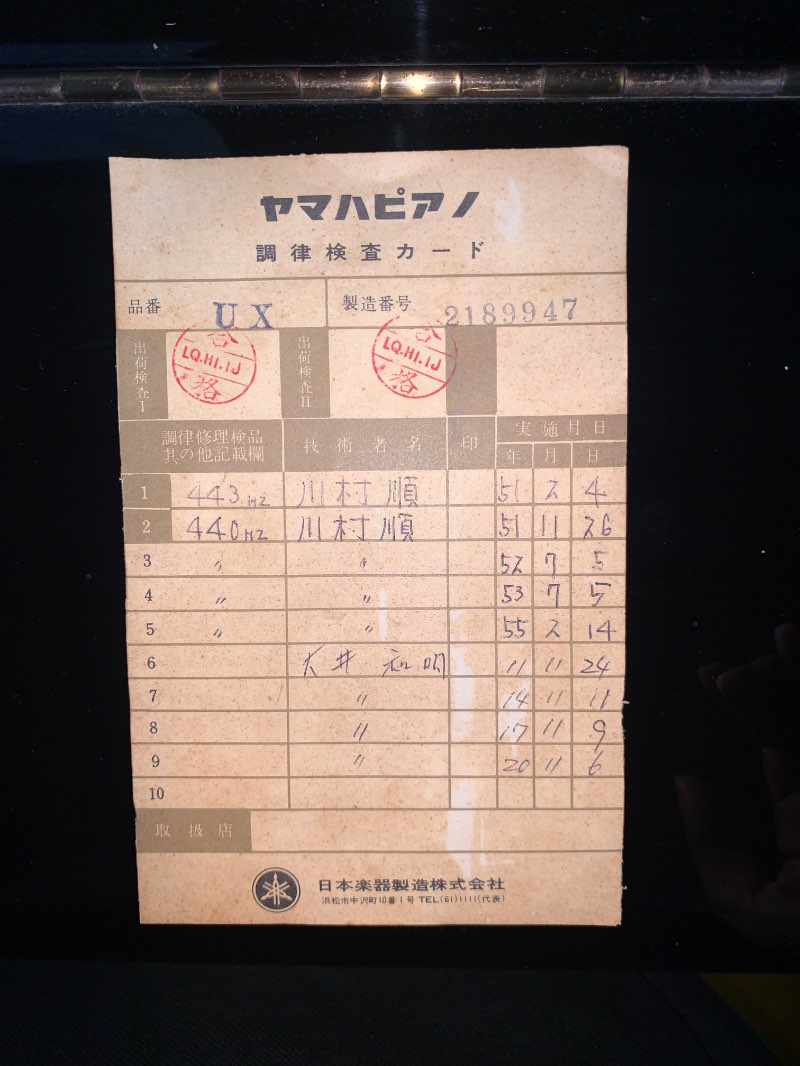 ヤマハピアノ
調律検査カード
品番 UX 製造番号 2189947
出荷検査I 合格 LQ.HI.IJ 出荷検査II 合格 LQ.HI.IJ
調律修理検品其の他記載欄 技術者名 印 実施月日
年 月 日
1 443HZ 川村順 51 2 4
2 440HZ 川村順 51 11 26
3 〃 〃 52 7 5
4 〃 〃 53 7 5
5 〃 〃 55 2 14
6 大井和明 11 11 24
7 〃 14 11 11
8 〃 17 11 9
9 〃 20 11 6
10
取扱店
日本楽器製造株式会社
浜松市中沢町10番1号 TEL(61)1111(代表)